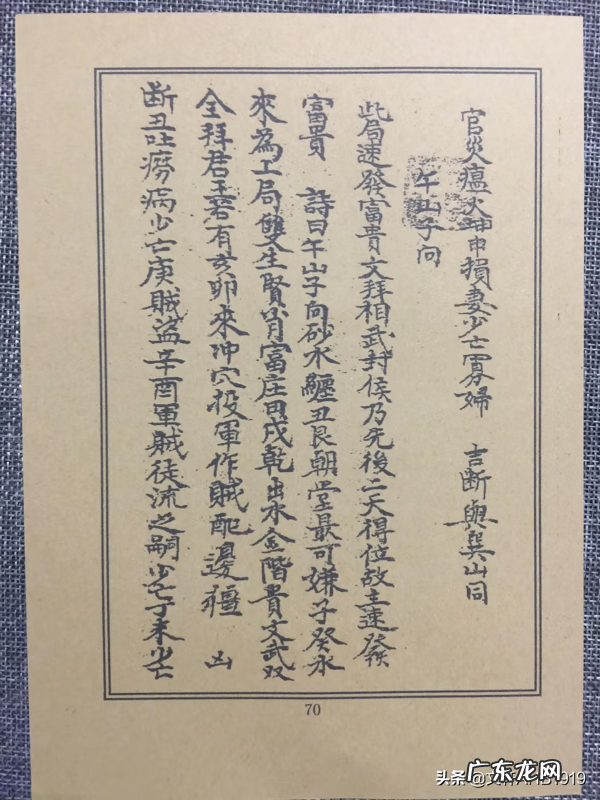 官災瘟火坤申損妻少亡寡婦　吉断與巽山同
午山子向
此局速發富貴文拜相武封侯乃先後二天得位故主速發
富貴　詩曰午山子向砂水纏丑艮朝堂最可嫌子癸水
來為工局雙生賢肖富庄田戌乾出水金階貴文武双
全拜君王若有亥卯來冲穴投軍作賊配邊疆　凶
断丑吐癆病少亡庚賊盗辛酉軍賊徒流乏嗣少亡丁未少亡
70
头条
广东龙网